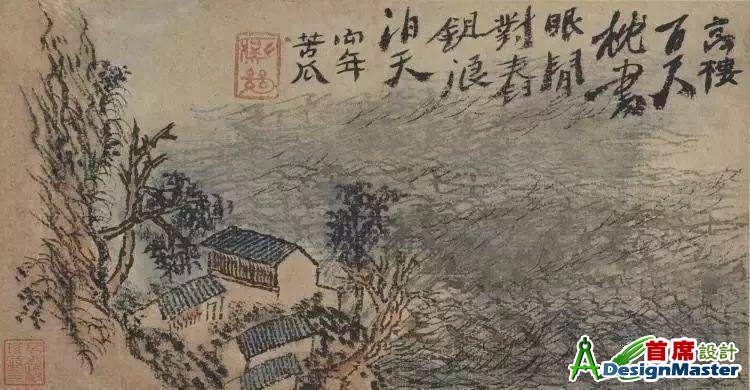 高樓
百尺
枕書
眠閒
對舂
鉏浪
拍天
丙年
苦瓜
首席設計
DesignMaster